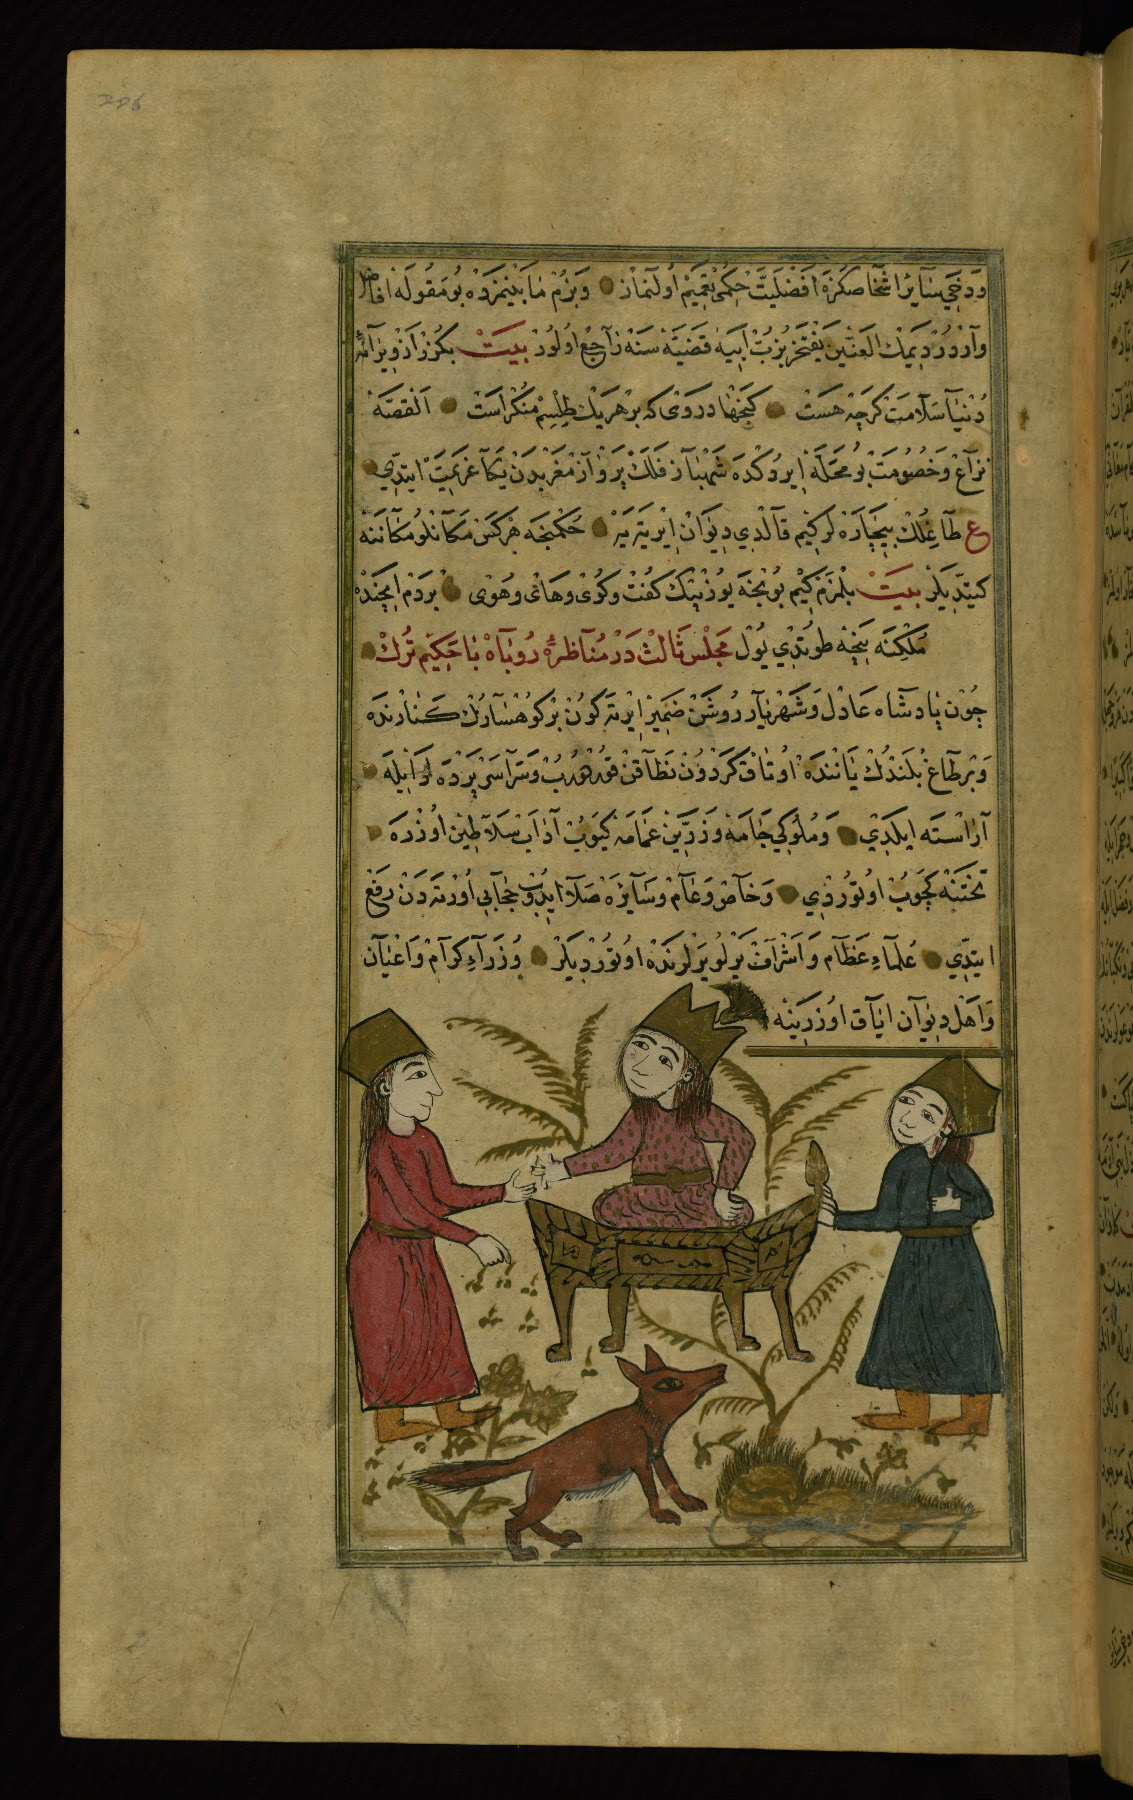 226
ودخی سایر اشخاصکزه افضلیت حکمی تعمیم اولنماز وبزم مابینمزده بو مقوله افاضل
واردر دیمك العنین یفتخر بزب ابیه قضیه سنه راجع اولور بیت بکرز از ویرانه
دنیا سلامت کرچه هست کنجها در وی که بر هر یك طلسم منکر است القصه
نزاع وخصومت بو محله ایردکده شهباز فلك پرواز مغربدن یکا عزیمت ایتدی
ع طاغلك بیچاره لر کیم قالدی دیوان ایرته یه حکمنجه هرکس مکانلو مکاننه
کیتدیلر بیت بلمزم کیم بونجه یوز بیك کفت وکوی وهای وهوی بردم ایچنده
ملکنه نیجه طوتدی یول مجلس ثالث در مناظرهٔ روباه با حکیم ترك
چون پادشاه عادل وشهریار روشن ضمیر ایرته کون بر کوهسارك کنارنده
وبر طاغ بلندك یاننده اوتاق کردون نطاقن قوردروب وسراسر پرده لر ایله
آراسته ایلدی وملوکی جامه وزرین عمامه کیوب آداب سلاطین اوزره
تختنه کچوب اوتوردی وخاص وعام وسایره صلا ایدوب حجابی اورته دن رفع
ایتدی علماء عظام واشراف یرلو یرلرنده اوتوردیلر وزراء کرام واعیان
واهل دیوان ایاق اوزرینه